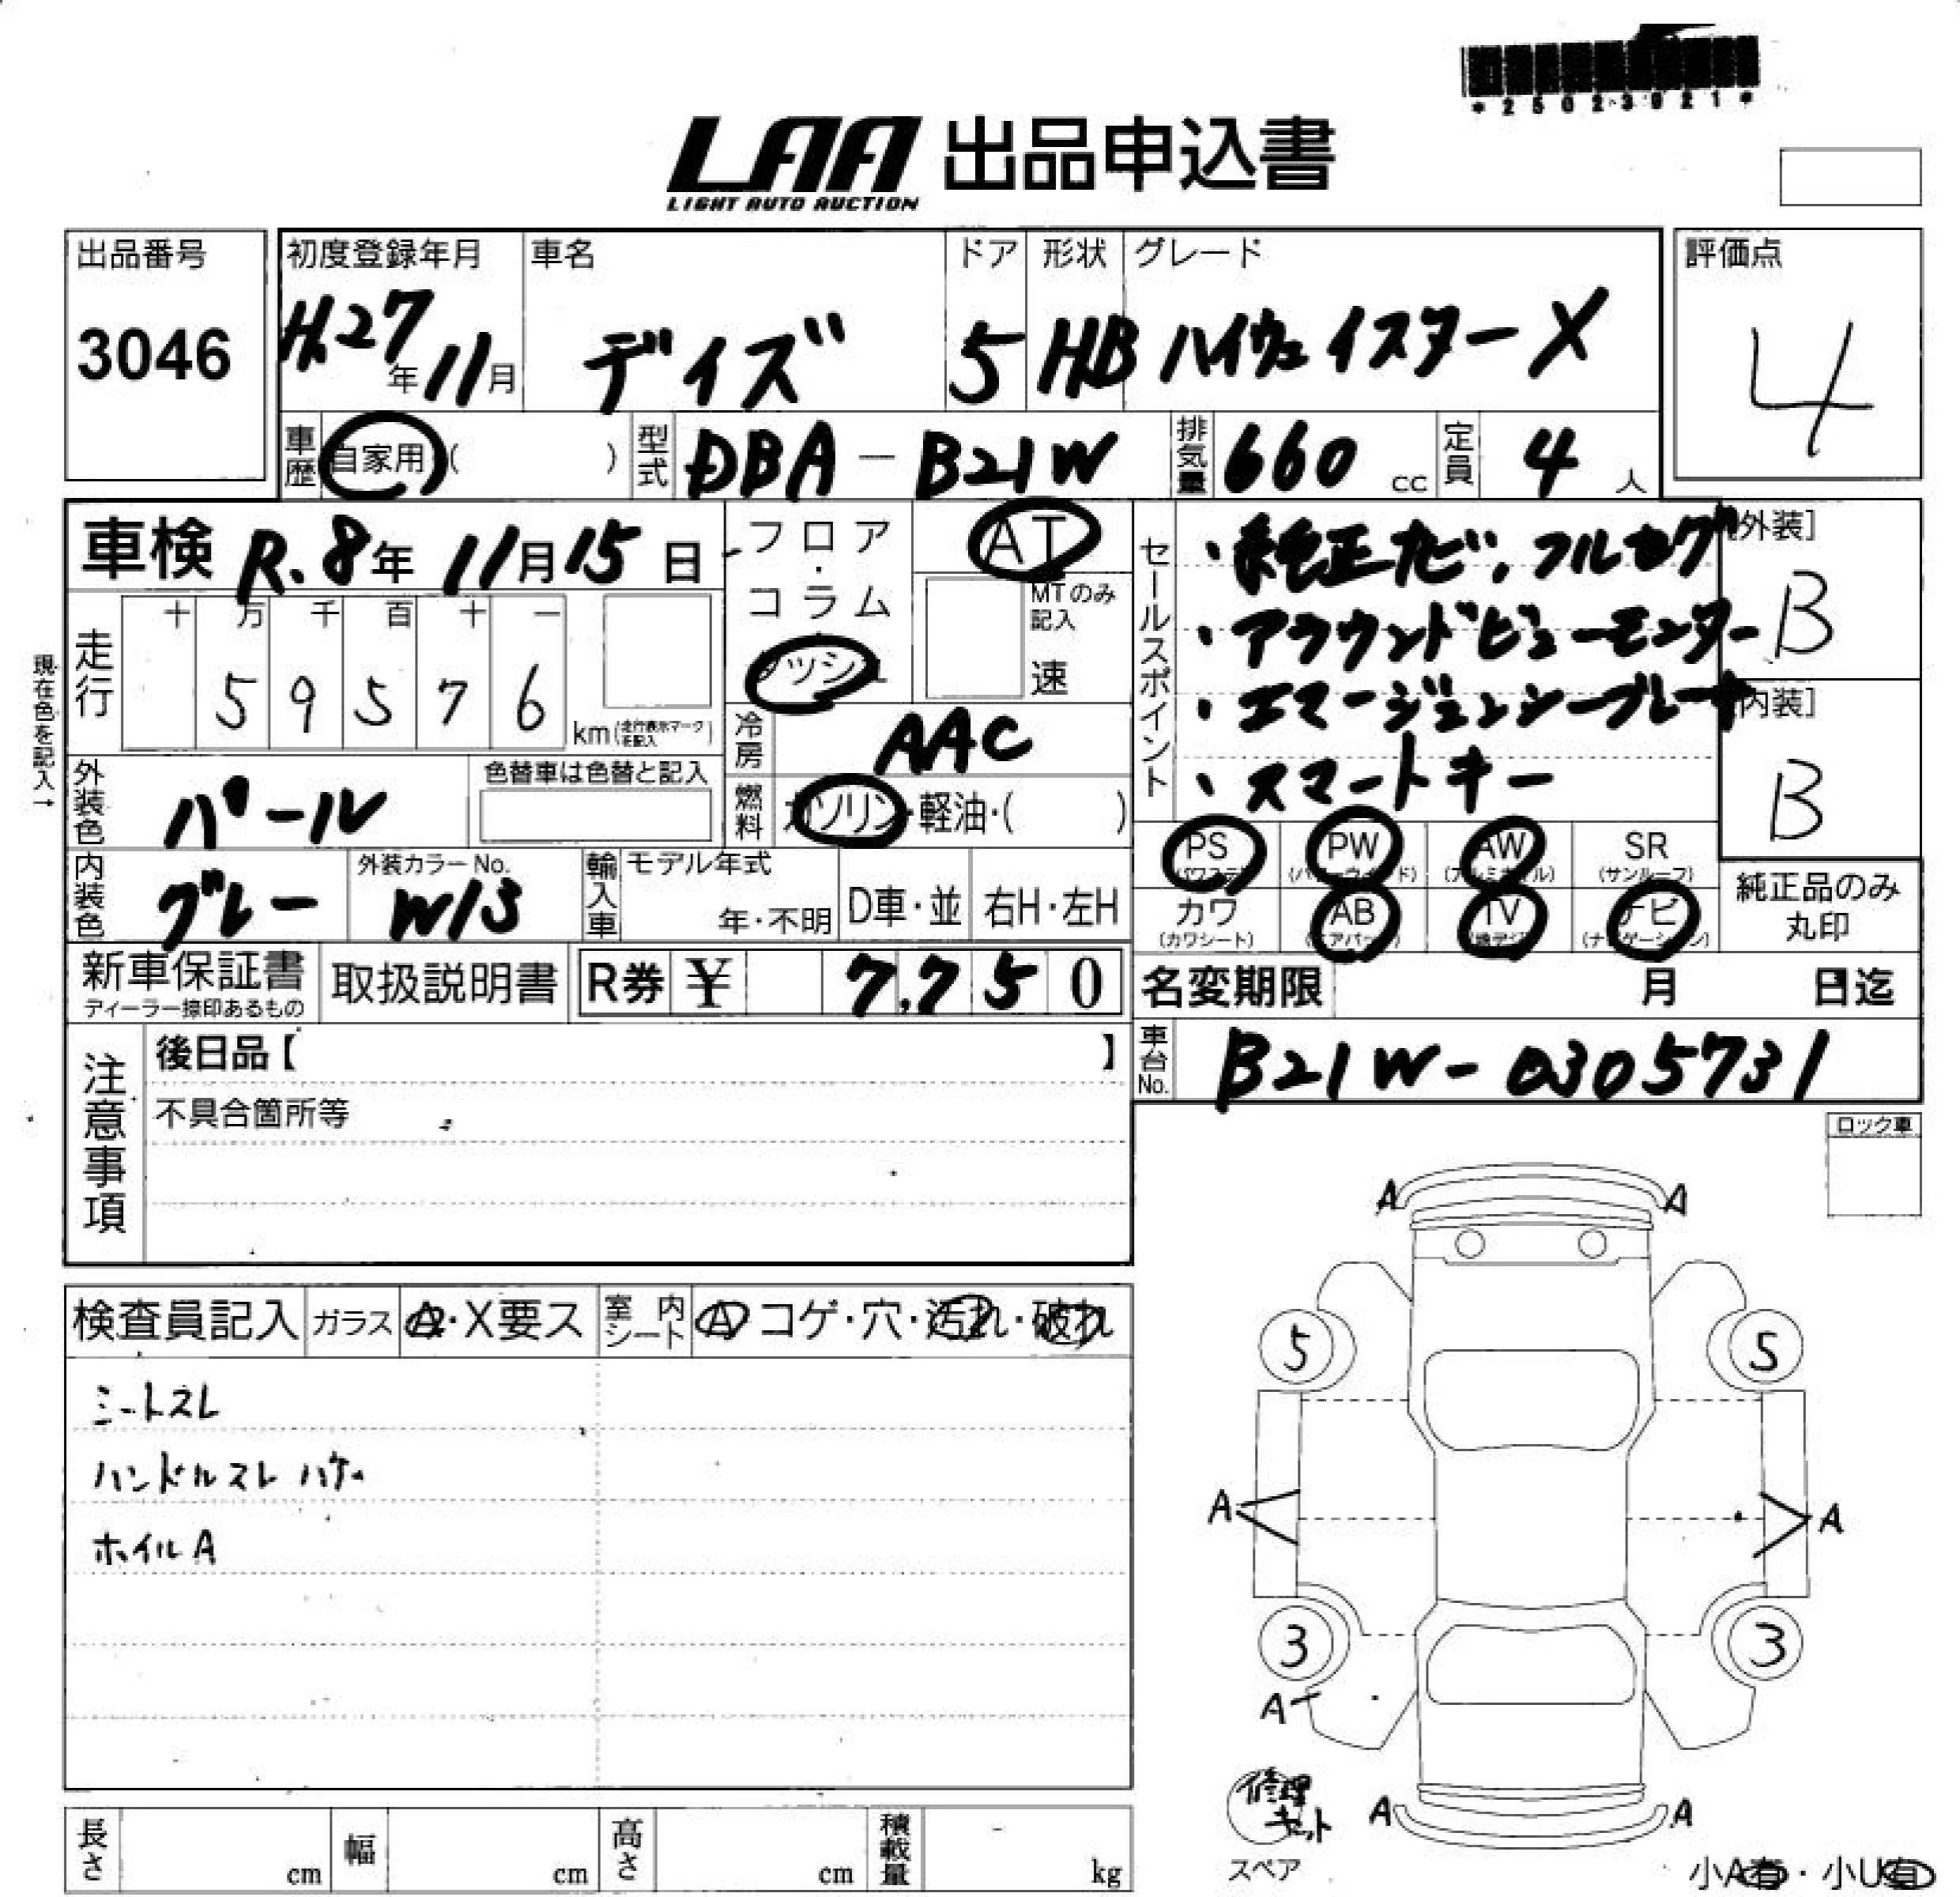 *25023921*
LAA 出品申込書
LIGHT AUTO AUCTION
出品番号 3046
初度登録年月 H.27年11月
車名 デイズ
ドア 5
形状 HB
グレード ハイウェイスターX
評価点 4
車歴 自家用 ( )
型式 DBA-B21W
排気量 660 cc
定員 4 人
車検 R.8年11月15日
フロア・コラム・ダッシュ
AT
MTのみ記入 速
セールスポイント
・純正ナビ,フルセグ
・アラウンドビューモニター
・エマージェンシーブレーキ
・スマートキー
[外装] B
[内装] B
現在色を記入→
走行 十 万 千 百 十 一
5 9 5 7 6 km (走行表示マークを記入)
冷房 AAC
燃料 ガソリン・軽油・( )
外装色 パール
色替車は色替と記入
内装色 グレー
外装カラーNo. W13
輸入車 モデル年式 年・不明 D車・並 右H・左H
PS (パワステ) PW (パワーウィンド) AW (アルミホイル) SR (サンルーフ)
カワ (カワシート) AB (エアバッグ) TV (地デジ) ナビ (ナビゲーション)
純正品のみ丸印
新車保証書 ディーラー捺印あるもの
取扱説明書
R券 ¥ 7,750
名変期限 月 日迄
車台No. B21W-0305731
注意事項
後日品【 】
不具合箇所等
ロック車
検査員記入 ガラス A・X要ス 室内シート A コゲ・穴・汚れ・破れ
シートスレ
ハンドルスレ ハゲ
ホイルA
A A
5 5
A A
3 3
A
A A
修理キット
スペア
小A有・小U有
長さ cm 幅 cm 高さ cm 積載量 kg